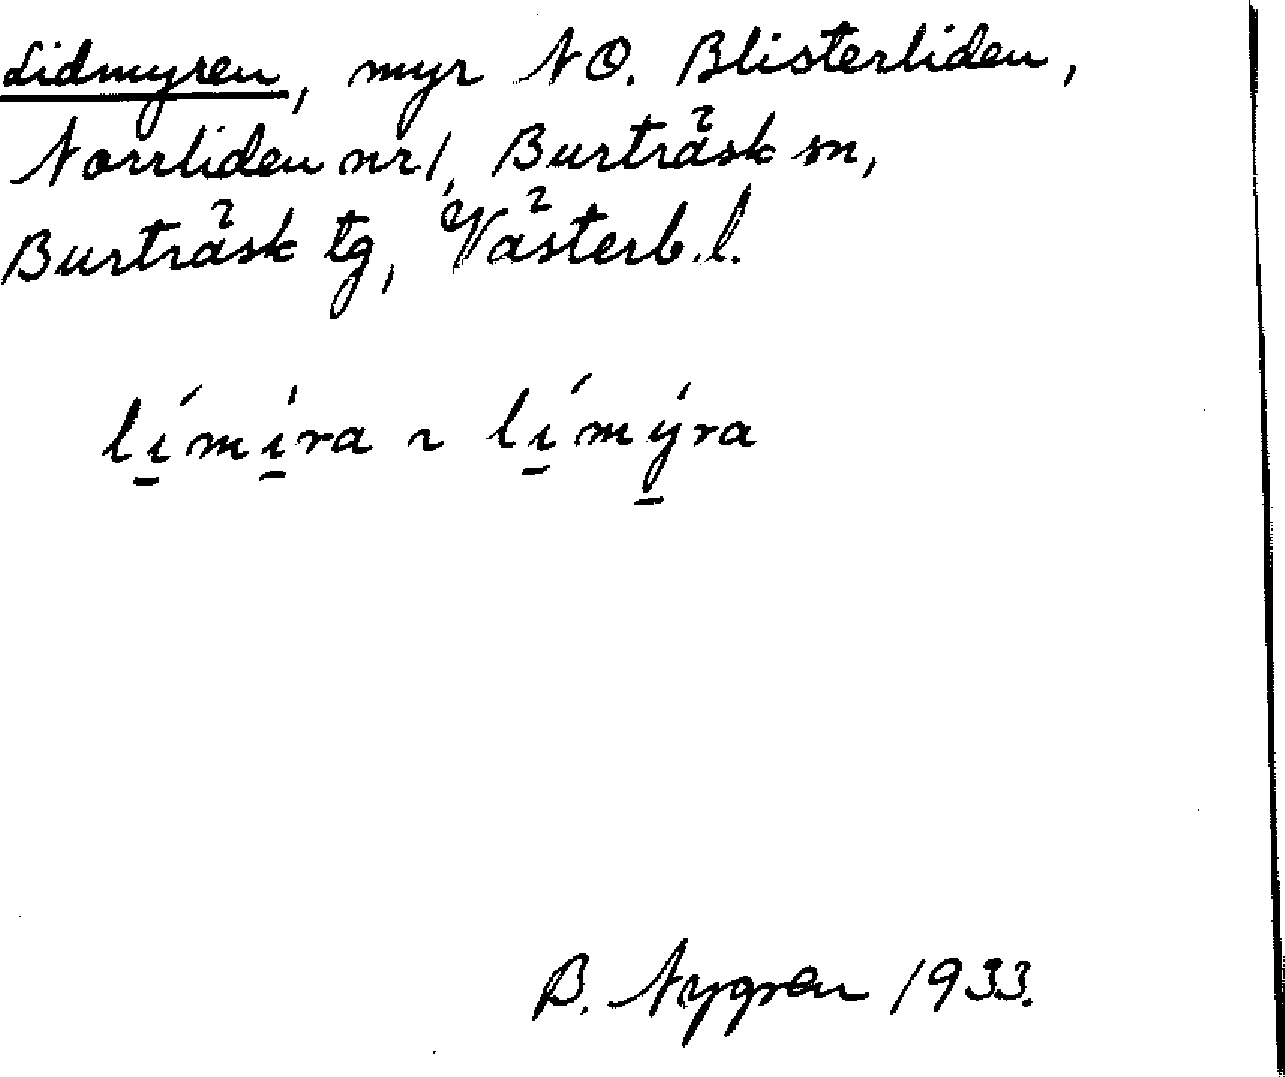 Lidmyren, myr NO. Blisterliden,
Norrliden nr 1, Burträsk sn,
Burträsk tg, Västerb.l.
lí̱mí̱ra ~ lí̱mý̱ra
B. Nygren 1933.